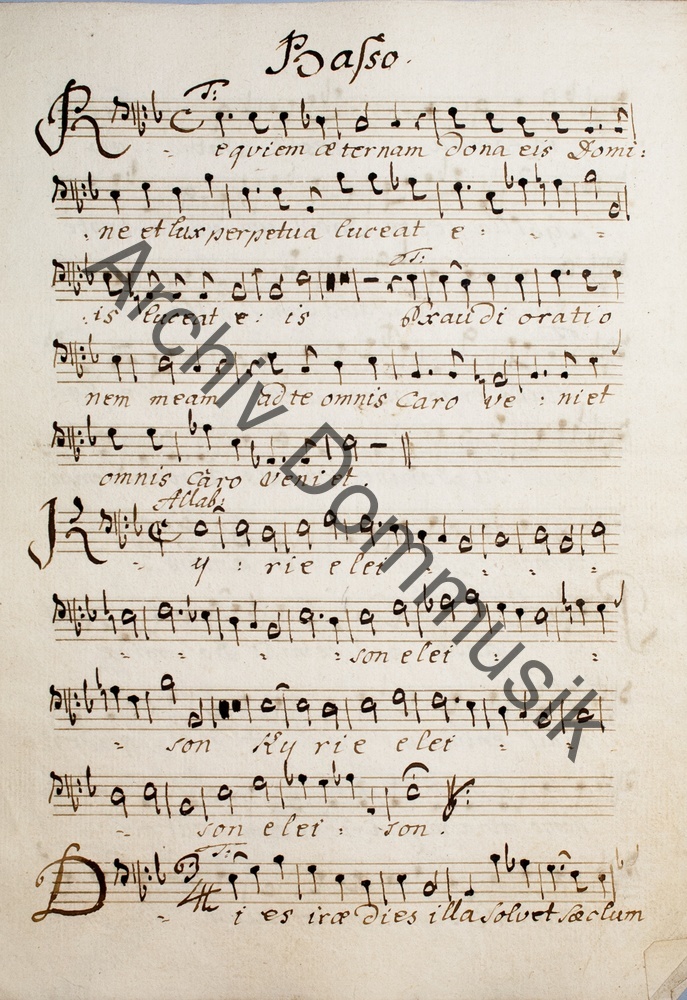 Basso.
T:
Requiem æternam dona eis Domi:
ne et lux perpetua luceat e:
T:
is luceat e: is Exaudi oratio
nem meam ad te omnis Caro Ve: niet
omnis Caro Veniet.
Allab:
Ky: rie elei
son elei
son Ky rie elei
son elei: son.
T:
Dies iræ dies illa Solvet sæclum
Archiv Dommusik